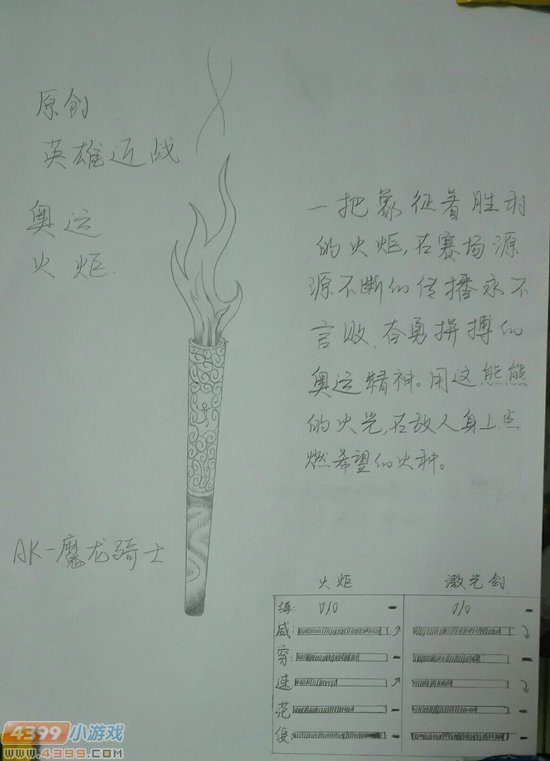 原创
英雄近战
奥运
火炬
一把象征着胜利
的火炬,在赛场源
源不断的传播永不
言败、奋勇拼搏的
奥运精神。用这熊熊
的火光,在敌人身上点
燃希望的火种。
AK-魔龙骑士
火炬 激光剑
弹: 0/0 - 0/0 -
威:
穿:
速:
范:
便:
4399小游戏
www.4399.com